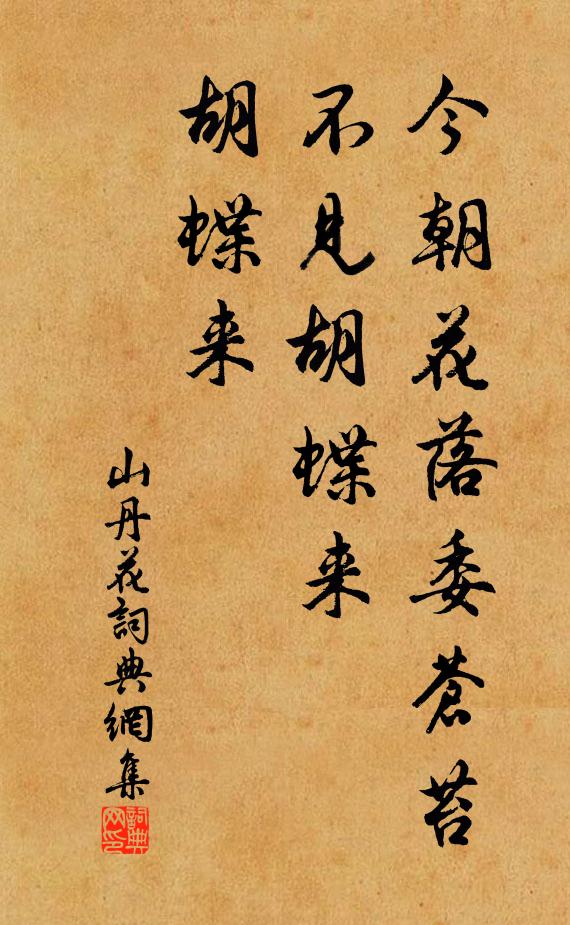 今朝花落委蒼苔
不見胡蝶来
胡蝶来
山丹花詞典網集
詞典
网印